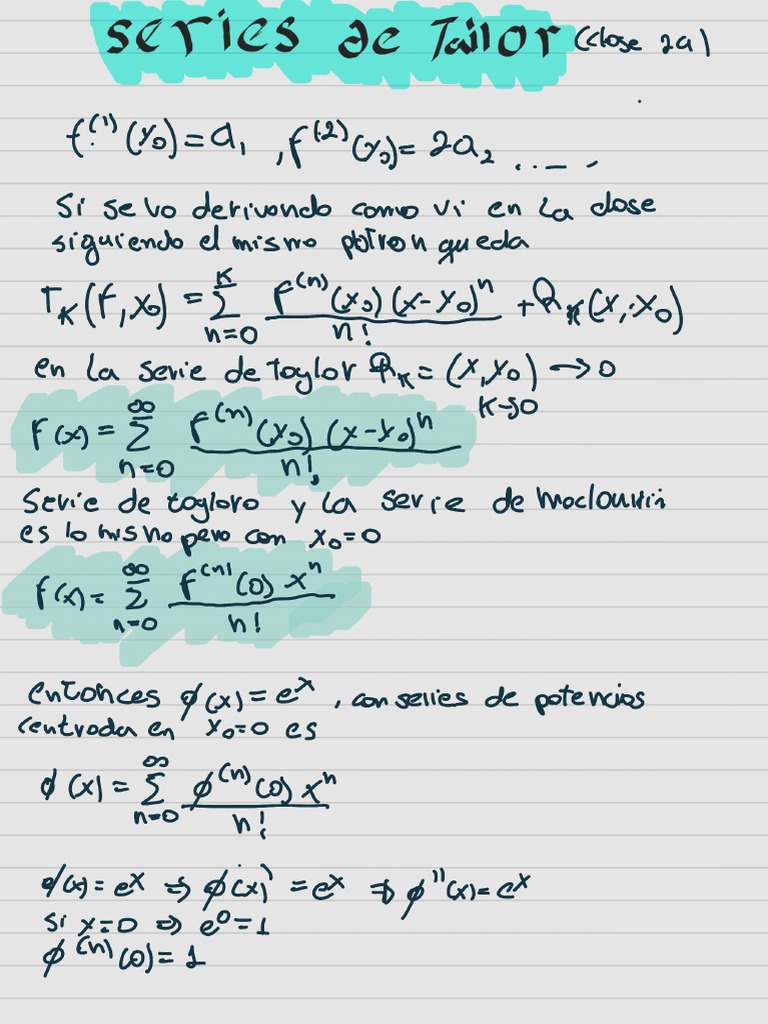 series de Tailor (clase 2a)
f⁽¹⁾(x₀) = a₁ , f⁽²⁾(x₀) = 2a₂ ..._ ,
Si se va derivando como vi en la clase
siguiendo el mismo patron queda
T_K(f, x₀) = Σ_{n=0}^{K} f⁽ⁿ⁾(x₀)(x-x₀)ⁿ / n! + R_K(x, x₀)
en la serie de taylor R_K = (x, x₀) → 0
K→0
f(x) = Σ_{n=0}^{∞} f⁽ⁿ⁾(x₀)(x-x₀)ⁿ / n!
Serie de tayloro y la serie de maclaurin
es lo mismo pero con x₀=0
f(x) = Σ_{n=0}^{∞} f⁽ⁿ⁾(0) xⁿ / n!
entonces ϕ(x) = eˣ , con series de potencias
centrada en x₀=0 es
ϕ(x) = Σ_{n=0}^{∞} ϕ⁽ⁿ⁾(0) xⁿ / n!
ϕ(x) = eˣ ⇒ ϕ(x)' = eˣ ⇒ ϕ''(x) = eˣ
si x=0 ⇒ e⁰=1
ϕ⁽ⁿ⁾(0) = 1